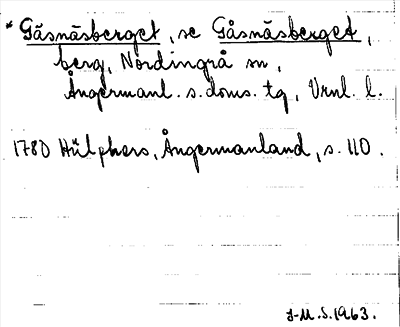 * Gäsnäsberget, se Gåsnäsberget,
berg, Nordingrå sn,
Ångermanl. s. doms. tg, Vrnl. l.
1780 Hülphers, Ångermanland, s. 110.
J-M. S. 1963.